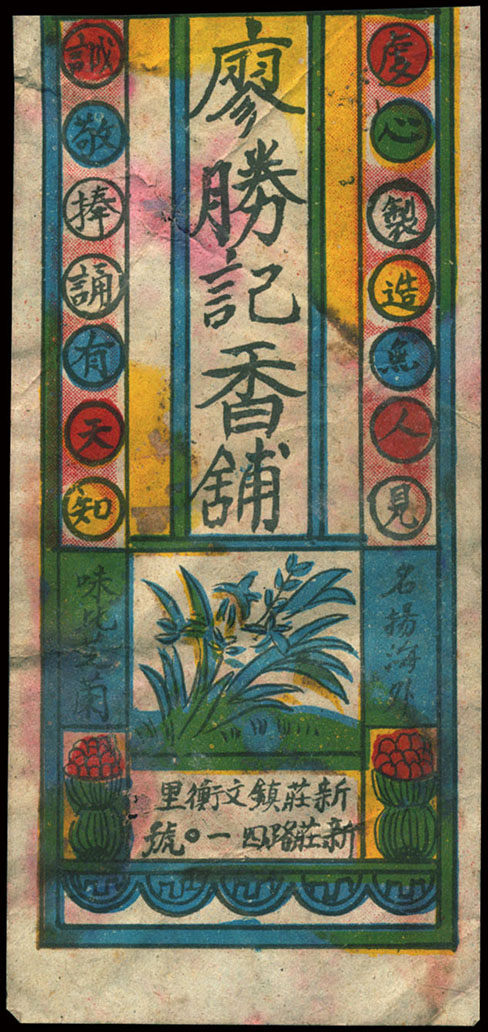 虔心製造無人見
廖勝記香舖
誠敬捧誦有天知
名揚海外
味比芝蘭
新莊鎮文衡里
新莊路四一〇號